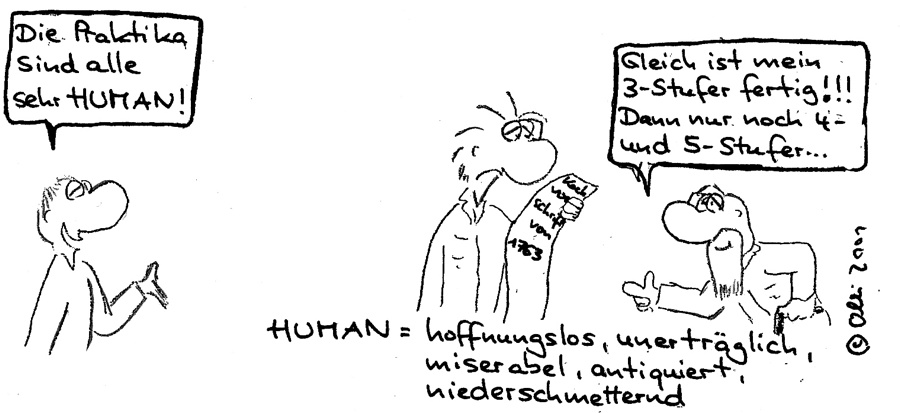 Die Praktika
Sind alle
sehr HUMAN!
Gleich ist mein
3-Stufer fertig!!!
Dann nur noch 4-
und 5-Stufer...
Koch
vor
schrift
von
1763
HUMAN = hoffnungslos, unerträglich,
miserabel, antiquiert,
niederschmetternd
©